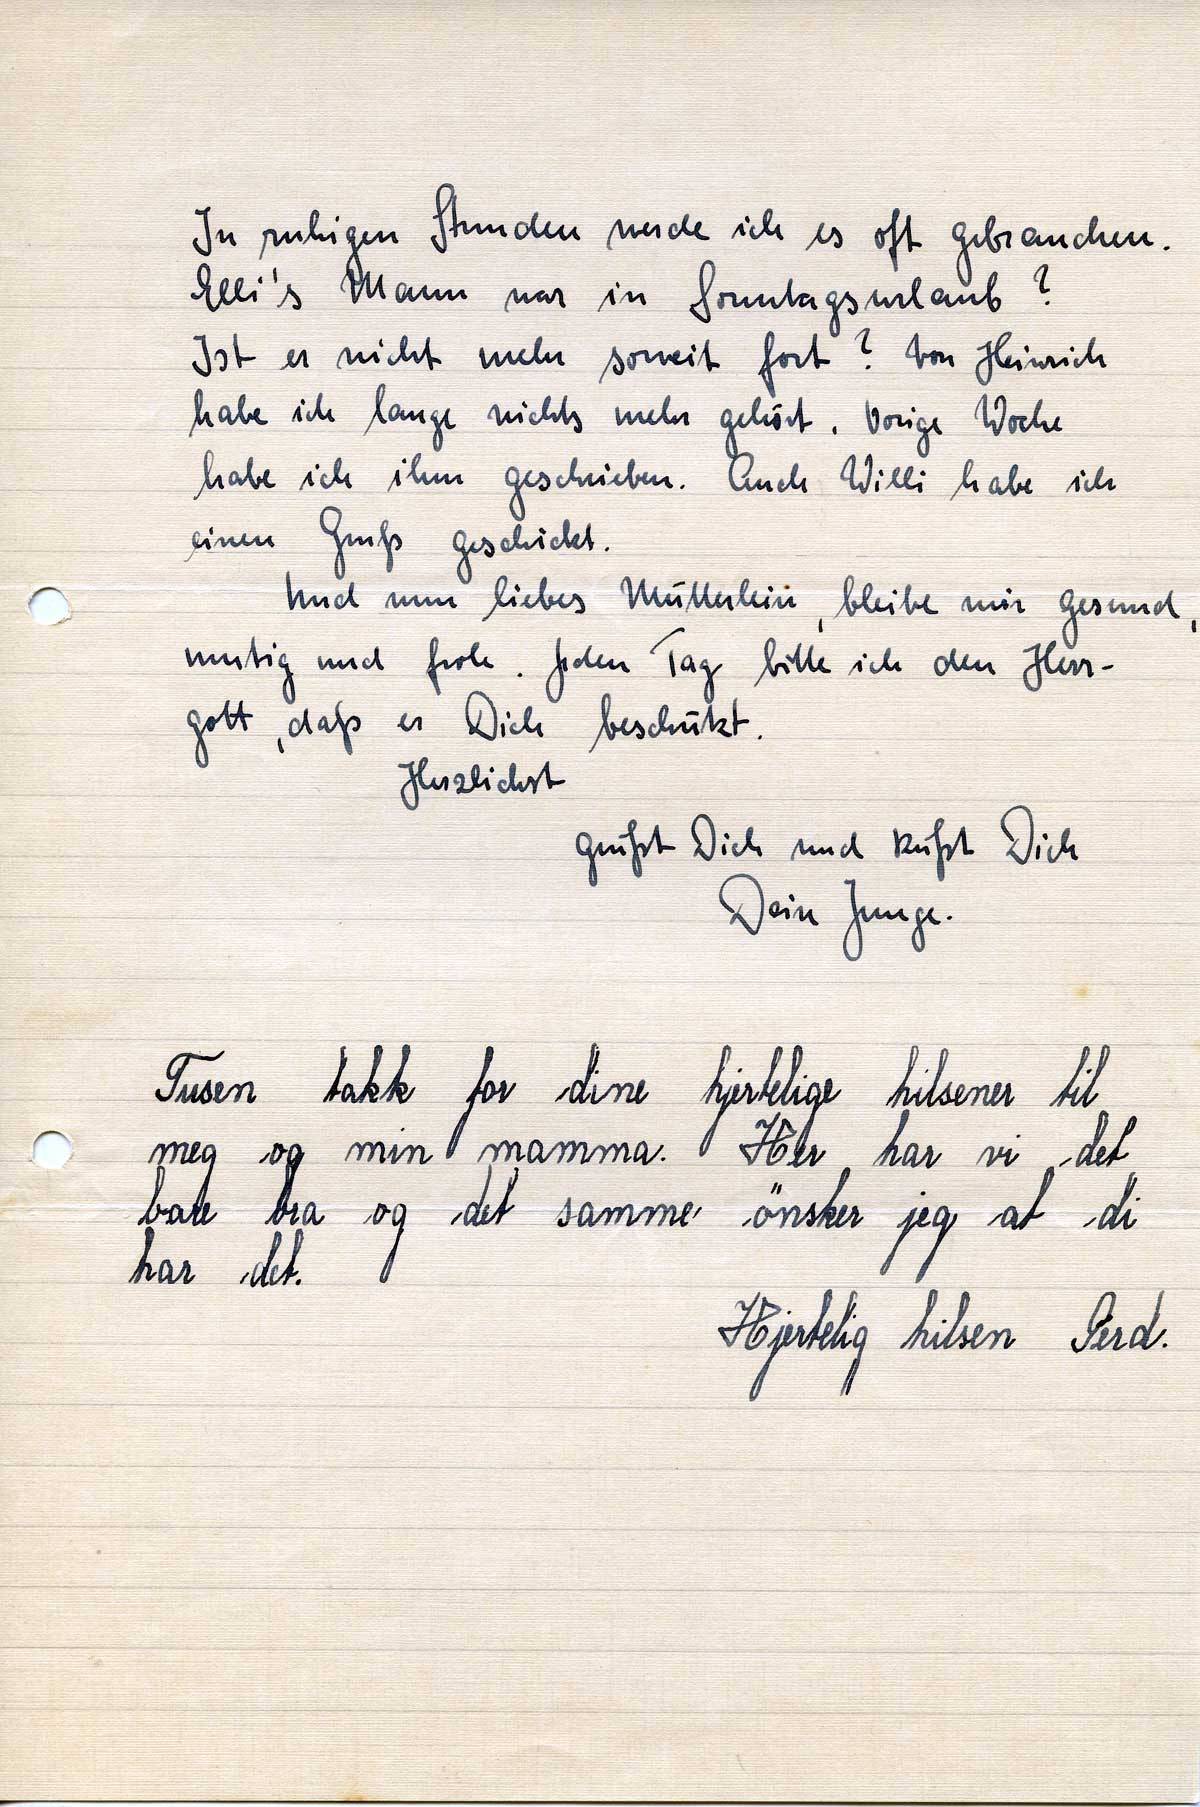 In ruhigen Stunden werde ich es oft gebrauchen.
Elli's Mann war in Sonntagsurlaub?
Ist er nicht mehr soweit fort? Von Heinrich
habe ich lange nichts mehr gehört. Vorige Woche
habe ich ihm geschrieben. Auch Willi habe ich
einen Gruß geschickt.
Und nun liebes Mütterlein, bleibe mir gesund,
mutig und froh. Jeden Tag bitte ich den Herr-
gott, daß er Dich beschützt.
Herzlichst
grüßt Dich und küßt Dich
Dein Junge.
Tusen takk for dine hjertelige hilsener til
meg og min mamma. Her har vi det
bare bra og det samme önsker jeg at di
har det.
Hjertelig hilsen